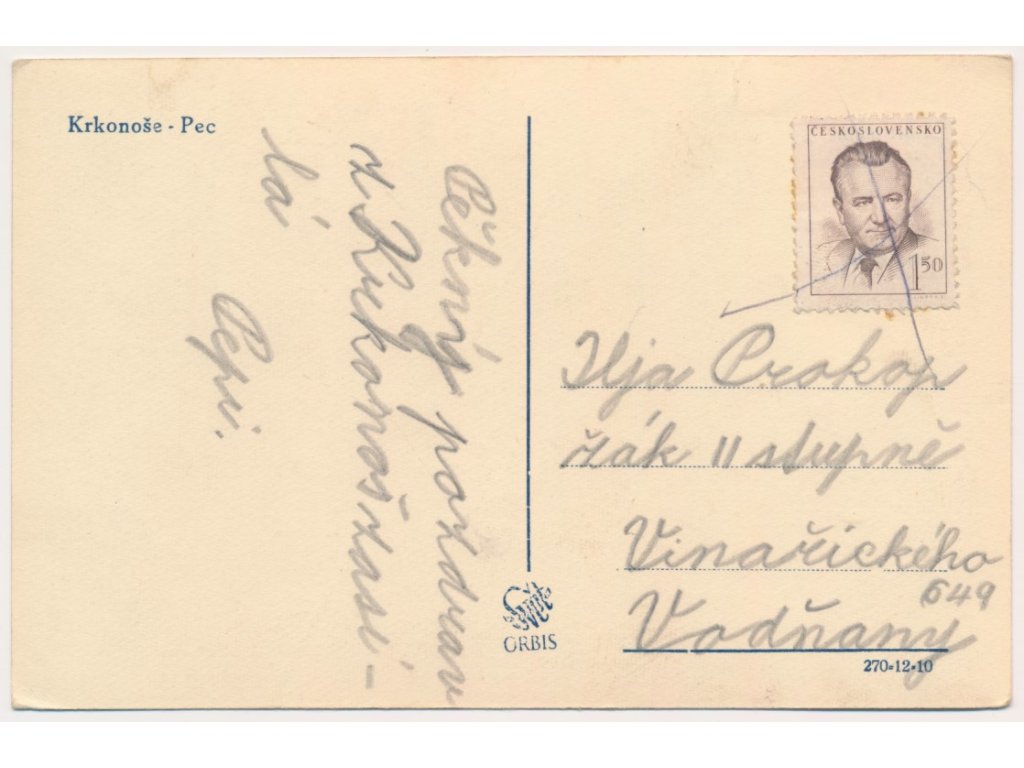 Krkonoše - Pec
Pěkný pozdrav
z Krkonoš zasí-
lá
Pepi.
ČESKOSLOVENSKO
1.50
Ilja Prokop
žák II stupně
Vinařického
649
Vodňany
ORBIS
270-12-10